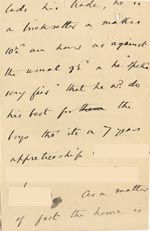 lads his trade, he is
a bricksetter & makes
10½ an hour as against
the usual 9½ & he spoke
very fair that he wd. do
his best for the
boys that its a 7 years
apprenticeship.
As a matter
of fact the home is